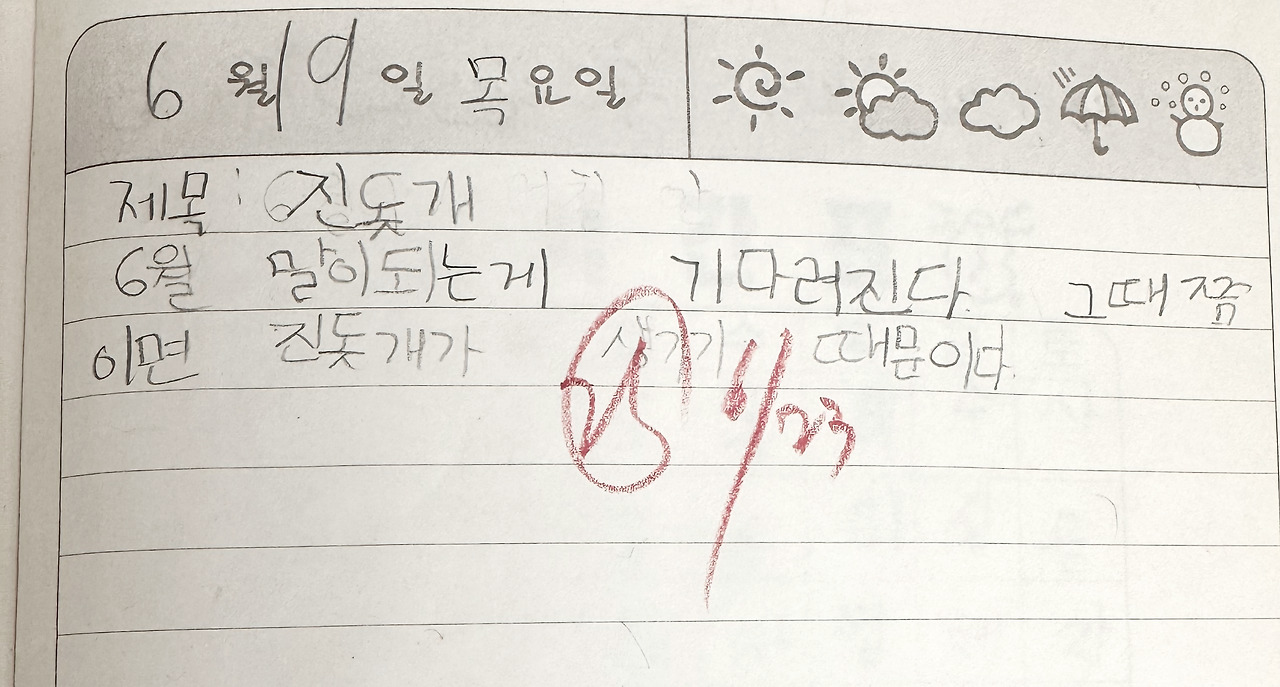 6월 9일 목요일
제목: 진돗개
6월 말이되는게 기다려진다. 그때쯤
이면 진돗개가 생기기 때문이다.
6/23